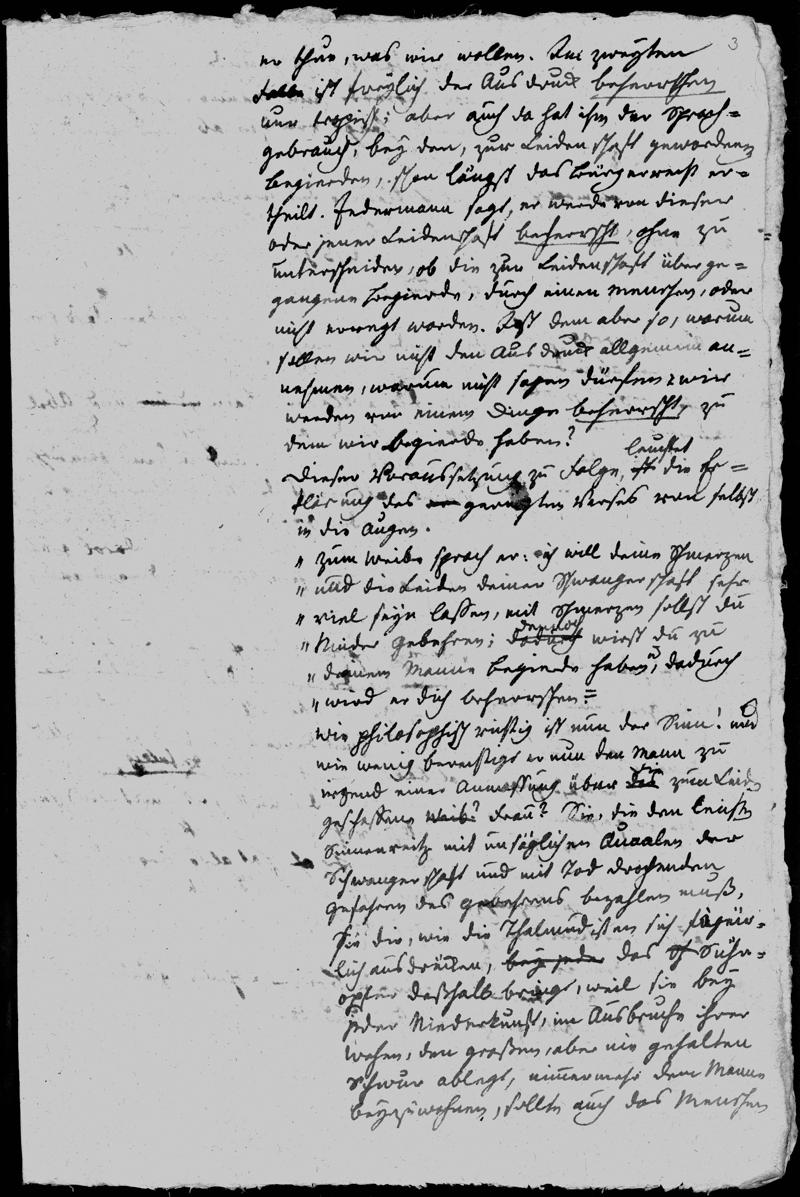 3
er thue, was wir wollen. Im zweyten
Falle ist freylich der Ausdruck beherrschen
nur tropisch; aber auch da hat ihm der Sprach=
gebrauch, bey den, zur Leidenschaft gewordenen
Begierden, schon längst das Bürgerrecht er=
theilt. Jedermann sagt, er werde von dieser
oder jener Leidenschaft beherrscht, ohne zu
unterscheiden, ob die zur Leidenschaft überge=
gangene Begierde, durch einen Menschen, oder
nicht erregt worden. Ist dem aber so, warum
sollen wir nicht den Ausdruck allgemein an=
nehmen, warum nicht sagen dürfen: wir
werden von einem Dinge beherrscht, zu
dem wir Begierde haben?
Dieser Voraussetzung zu Folge, leuchtet die Er=
klärung des geregten Verses von selbst
in die Augen.
„ Zum Weibe sprach er: ich will deine Schmerzen
„ und die Leiden deiner Schwangerschaft sehr
„ viel seyn lassen, mit Schmerzen sollst du
„ Kinder gebehren; dennoch wirst du zu
„ deinem Manne Begierde haben, dadurch
„ wird er dich beherrschen.=
Wie philosophisch richtig ist nun der Sinn! und
wie wenig berechtigt er nun den Mann zu
irgend einer Anmassung über die zum Leiden
geschaffene Frau? Sie, die den leichten
Sinnenreitz mit unsäglichen Quaalen der
Schwangerschaft und mit Tod drohenden
Gefahren des Gebehrens bezahlen muß,
Sie die, wie die Thalmudisten sich figür=
lich ausdrücken, das Sühn=
opfer deßhalb bringt, weil sie bey
jeder Niederkunft, im Ausbruche ihrer
Wehen, den großen, aber nie gehalten
Schwur ablegt, nimmermehr dem Manne
beyzuwohnen, sollte auch das Menschen